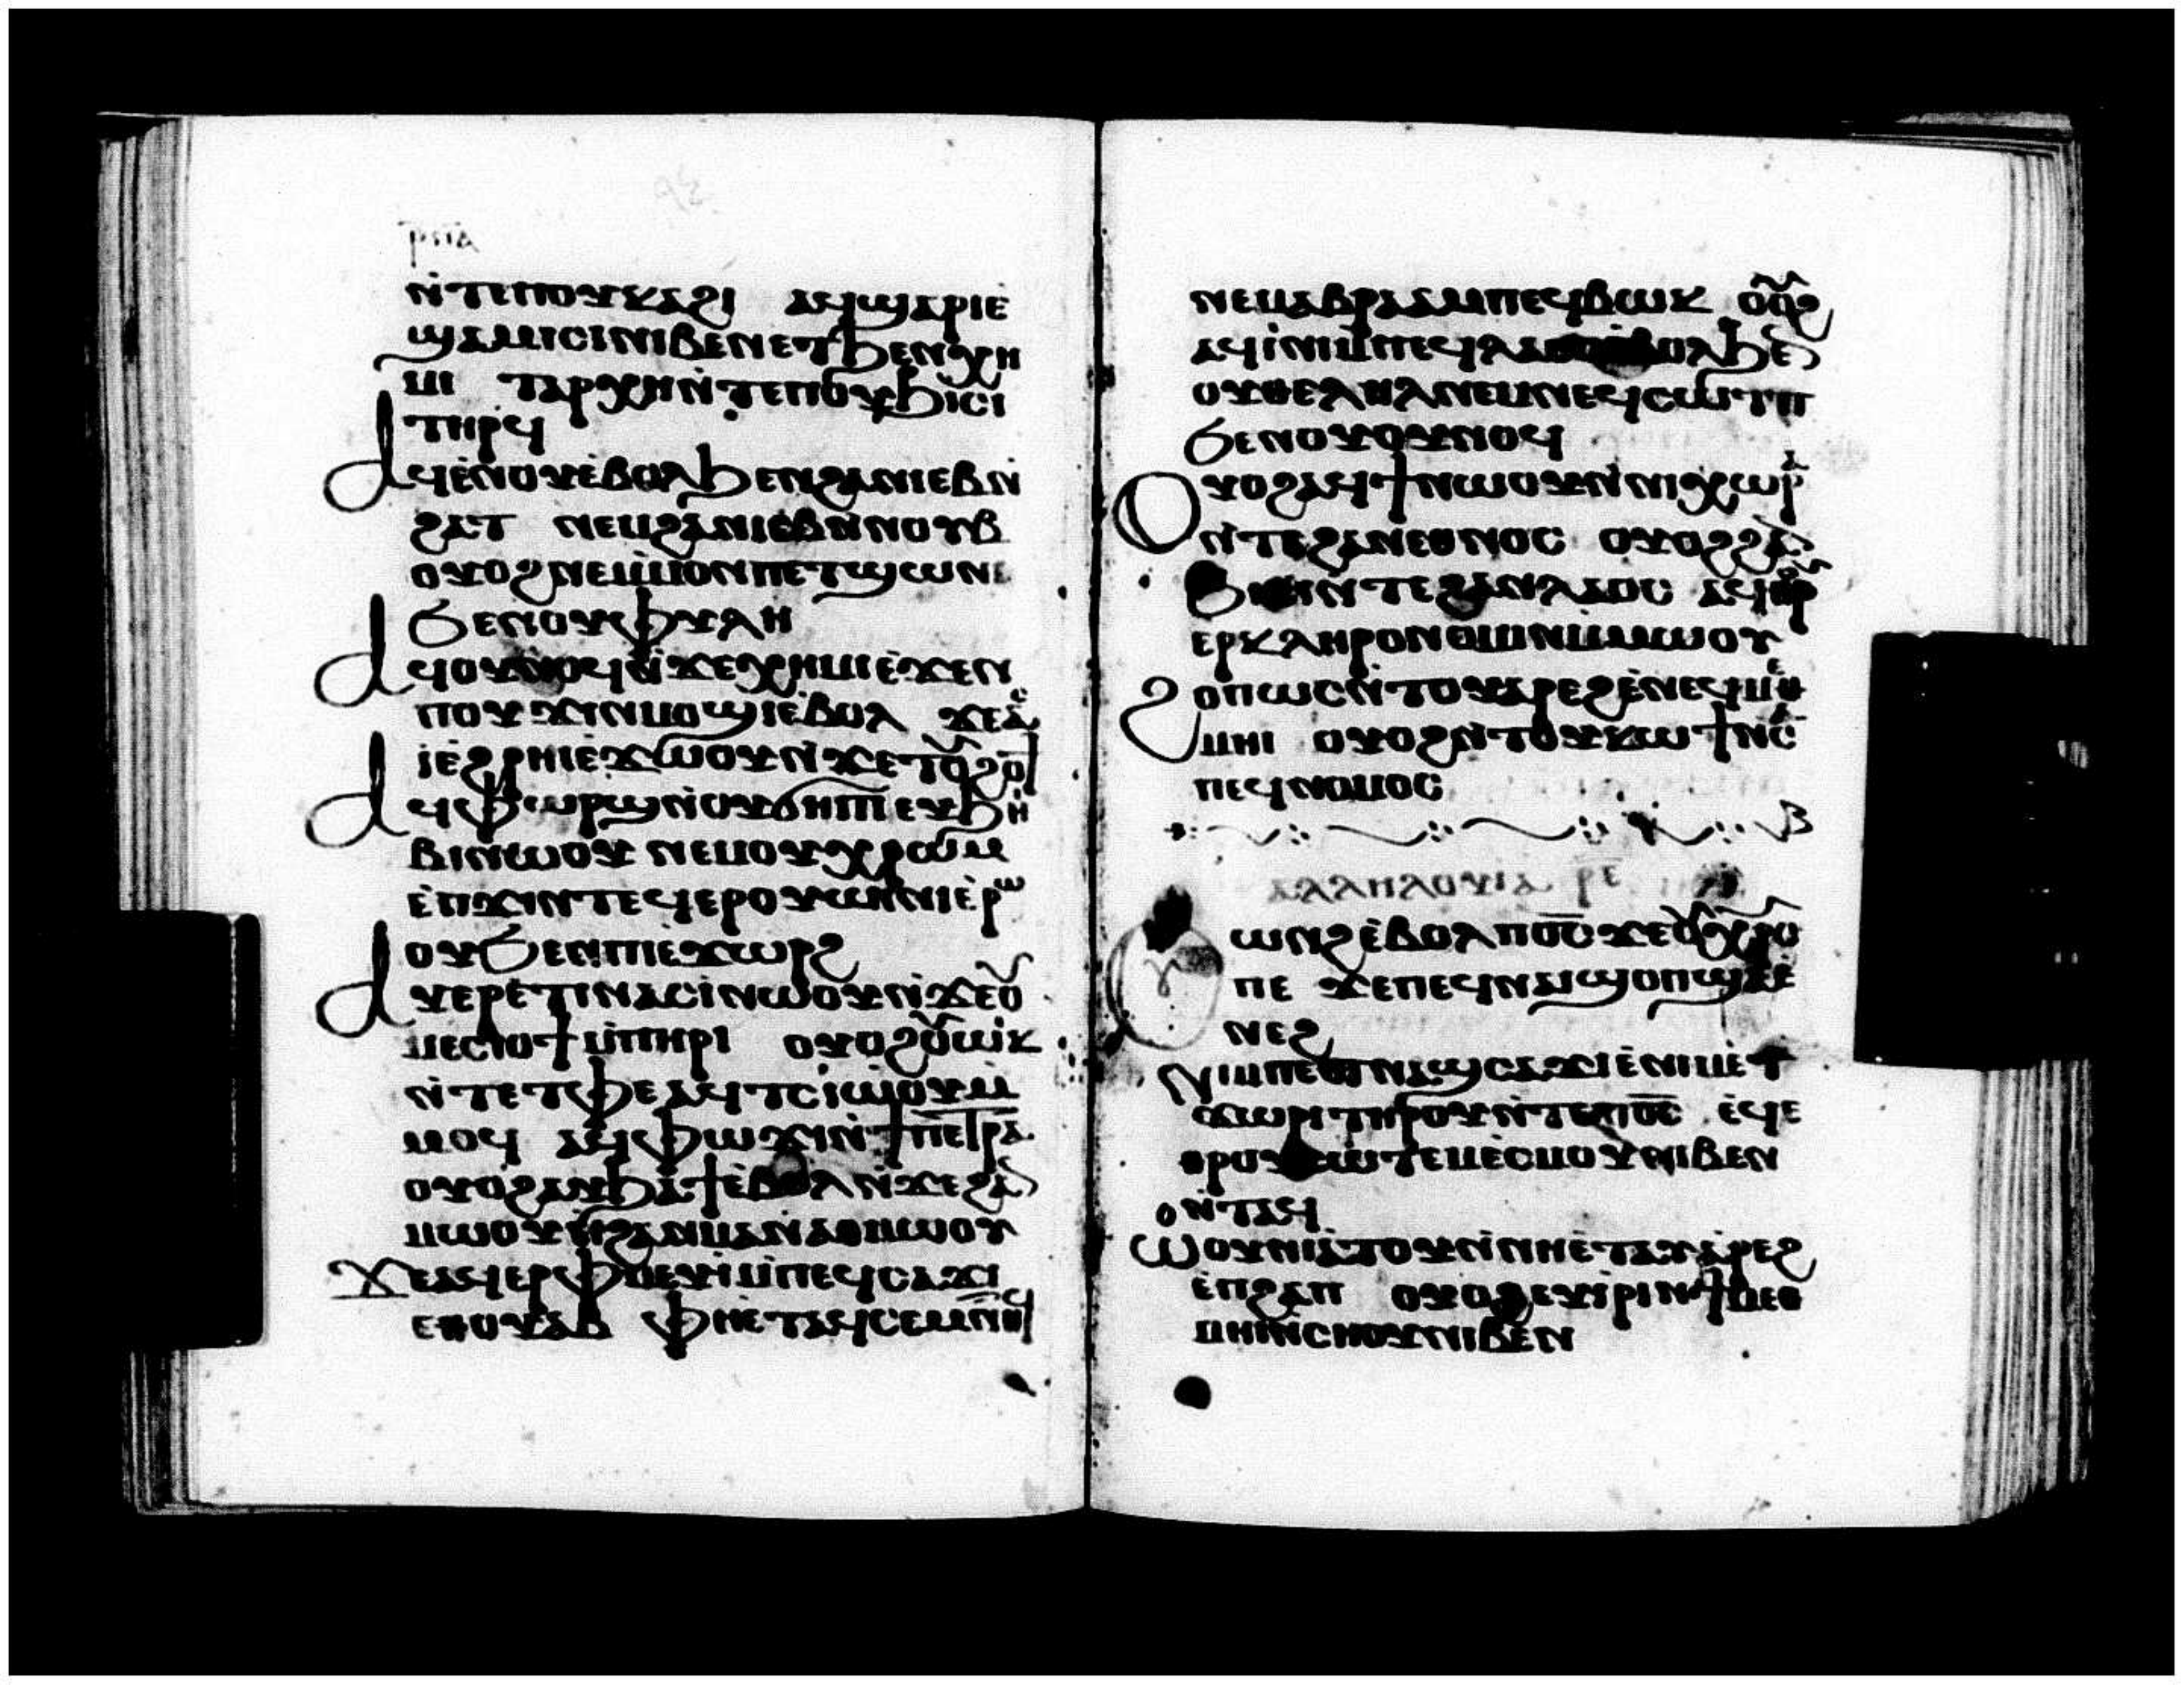 ⲣⲡⲁ
ⲛ̀ⲧⲉⲡⲟⲩⲕⲁϩⲓ ⲁϥϣⲁⲣⲓⲉ̀
ϣⲁⲙⲓⲥⲓⲛⲓⲃⲉⲛⲉⲧϧⲉⲛⲭⲏ
ⲙⲓ ⲧⲁⲣⲭⲏⲛ̀ⲧⲉⲡⲟⲩϧⲓⲥⲓ
ⲧⲏⲣϥ
ⲁϥⲉ̀ⲛⲟⲩⲉ̀ⲃⲟⲗϧⲉⲛϩⲁⲛⲓⲉⲃⲛ̀
ϩⲁⲧ ⲛⲉⲙϩⲁⲛⲓⲉⲃⲛ̀ⲛⲟⲩⲃ
ⲟⲩⲟϩⲛⲉⲙ̀ⲙⲟⲛⲡⲉⲧϣⲱⲛⲓ
ϧⲉⲛⲟⲩⲫⲩⲗⲏ
ⲁϥⲟⲩⲛⲟϥⲛ̀ϫⲉⲭⲏⲙⲓⲉ̀ϫⲉⲛ
ⲡⲟⲩϫⲓⲛⲙⲟϣⲓⲉ̀ⲃⲟⲗ ϫⲉⲁⲥ
ⲓ̀ⲉ̀ϩⲣⲏⲓⲉ̀ϫⲱⲟⲩⲛ̀ϫⲉⲧⲟⲩϩⲟϯ
ⲁϥⲫⲱⲣϣⲛ̀ⲟⲩϭⲏⲡⲓⲉⲩϧⲏⲓ
ⲃⲓⲛⲱⲟⲩ ⲛⲉⲙⲟⲩⲭⲣⲱⲙ
ⲉ̀ⲡϫⲓⲛⲧⲉϥⲉⲣⲟⲩⲱⲓⲛⲓⲉ̀ⲣⲱ
ⲟⲩϧⲉⲛⲡⲓⲉ̀ϫⲱⲣϩ
ⲁⲩⲉⲣⲉ̀ⲧⲓⲛⲁⲥⲓ̀ⲛⲱⲟⲩⲛ̀ϫⲉⲟⲩ
ⲙⲉⲥⲓⲟϯⲙ̀ⲡⲏⲣⲓ ⲟⲩⲟϩⲟⲩⲱⲓⲕ
ⲛ̀ⲧⲉⲧⲫⲉⲁϥⲧⲥⲓⲱⲟⲩⲙ̀
ⲙⲟϥ ⲁϥⲫⲱϫⲓⲛ̀ϯⲡⲉⲧⲣⲁ
ⲟⲩⲟϩⲁⲩϧⲁϯⲉ̀ⲃⲟⲗⲛ̀ϫⲉϩⲁⲛ
ⲙⲱⲟⲩϧⲉⲛϩⲁⲛⲙⲁⲛⲁⲑⲙⲱⲟⲩ
ϫⲉⲁϥⲉⲣⲫⲙⲉⲩⲓ̀ⲙ̀ⲡⲉϥⲥⲁϫⲓ
ⲉⲑⲟⲩⲁⲃ ⲫⲏⲉ̀ⲧⲁϥⲥⲉⲙⲛⲏⲧϥ
ⲛⲉⲙⲁⲃⲣⲁⲁⲙⲡⲉϥⲃⲱⲕ ⲟⲩⲟϩ
ⲁϥⲓ̀ⲛⲓⲙ̀ⲡⲉϥⲗⲁⲟⲥⲉ̀ⲃⲟⲗϧⲉⲛ
ⲟⲩⲑⲉⲗⲏⲗⲛⲉⲙⲛⲉϥⲥⲱⲧⲡ
ϧⲉⲛⲟⲩⲟⲩⲛⲟϥ
ⲟⲩⲟϩⲁϥϯⲛⲱⲟⲩⲛ̀ⲛⲓⲭⲱⲣⲁ
ⲛ̀ⲧⲉϩⲁⲛⲉⲑⲛⲟⲥ ⲟⲩⲟϩϩⲁⲛ
ϧⲓⲥⲓⲛ̀ⲧⲉϩⲁⲛⲗⲁⲟⲥ ⲁϥⲑⲣⲟⲩ
ⲉⲣⲕⲗⲏⲣⲟⲛⲟⲙⲓⲛ̀ⲙ̀ⲙⲱⲟⲩ
ϩⲟⲡⲱⲥⲛ̀ⲧⲟⲩⲁⲣⲉϩⲉ̀ⲛⲉϥⲙⲉⲑ
ⲙⲏⲓ ⲟⲩⲟϩⲛ̀ⲧⲟⲩⲕⲱϯⲛ̀ⲥⲁ
ⲡⲉϥⲛⲟⲙⲟⲥ
ⲁⲗⲗⲏⲗⲟⲩⲓⲁ ⲣⲉ
ⲟⲩⲱⲛϩⲉ̀ⲃⲟⲗⲙⲡⲟ̅ⲥ̅ϫⲉⲟⲩⲭⲣⲥ
ⲡⲉ ϫⲉⲡⲉϥⲛⲁⲓϣⲟⲡϣⲁⲉ̀
ⲛⲉϩ
ⲛⲓⲙⲡⲉⲑⲛⲁϣⲥⲁϫⲓⲉ̀ⲛⲓⲙⲉⲧ
ϫⲱⲣⲓⲧⲏⲣⲟⲩⲛ̀ⲧⲉⲡⲟ̅ⲥ̅ ⲉϥⲉ
ⲑⲣⲟⲩⲥⲱⲧⲉⲙⲉ̀ⲥⲙⲟⲩⲛⲓⲃⲉⲛ
ⲛ̀ⲧⲁϥ
ⲱⲟⲩⲛⲓⲁⲧⲟⲩⲛ̀ⲛⲏⲉ̀ⲧⲁⲩⲁ̀ⲣⲉϩ
ⲉ̀ⲡϩⲁⲡ ⲟⲩⲟϩⲉⲩⲓ̀ⲣⲓⲛ̀ϯⲙⲉⲑ
ⲙⲏⲓⲛ̀ⲥⲏⲟⲩⲛⲓⲃⲉⲛ